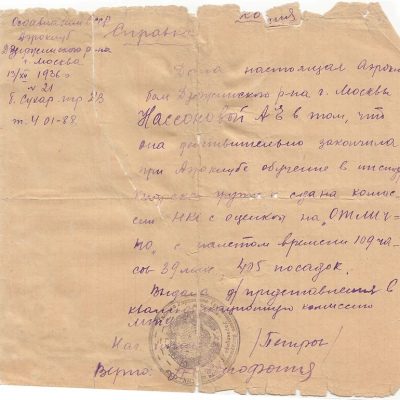 копия
Осоавиахим СССР
Аэроклуб
Дзержинского р-на
г. Москва
13/XII 1936 г.
№ 21
Б. Сухар. пер 23
т. 4 01-88
Справка
Дана настоящая Аэрок
лубом Дзержинского р-на г. Москвы
Нассоновой А В в том, что
она действительно закончила
при Аэроклубе обучение в
и сдана комис
сии НК с оценкой на „Отлич
но", с налетом времени 109 ча
сов 39 мин. 405 посадок.
Выдана для представления в
квалификационную комиссию
Нач. /Петров/
Верно: